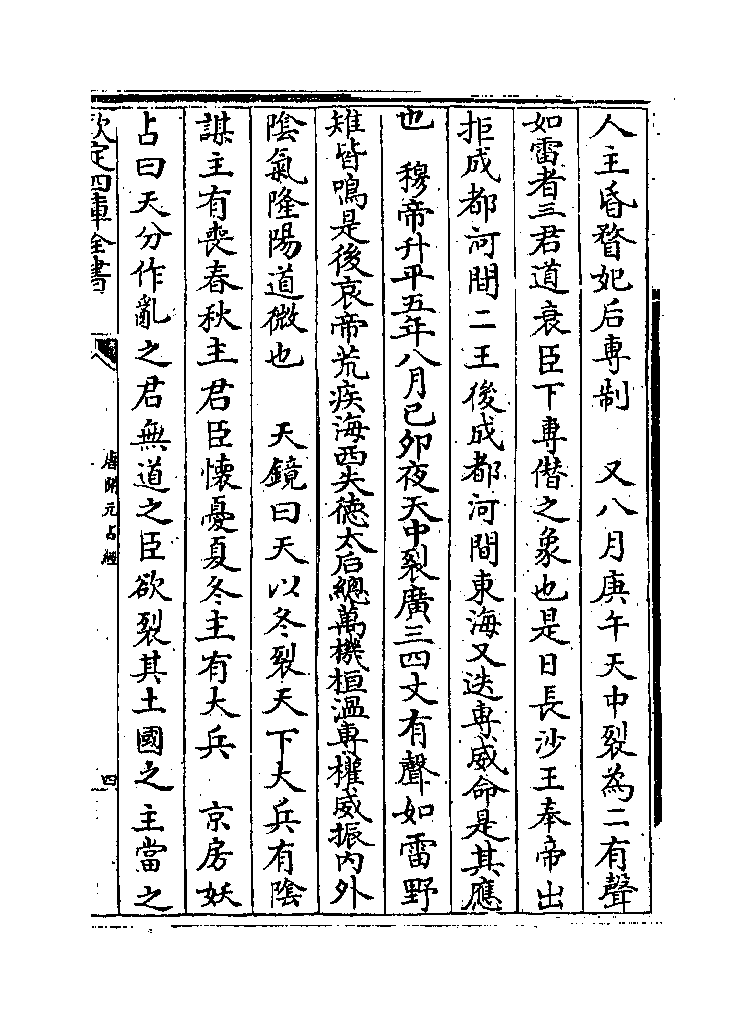 人主昏瞀妃后專制　又八月庚午天中裂為二有聲
如雷者三君道衰臣下專僭之象也是日長沙王奉帝出
拒成都河間二王後成都河間東海又迭專威命是其應
也　穆帝升平五年八月己卯夜天中裂廣三四丈有聲如雷野
雉皆鳴是後哀帝荒疾海西失德太后總萬機桓溫專權威振內外
陰氣隆陽道微也　天鏡曰天以冬裂天下大兵有陰
謀主有喪春秋主君臣懐憂夏冬主有大兵　京房妖
占曰天分作亂之君無道之臣欲裂其土國之主當之
欽定四庫全書
唐開元占經
四